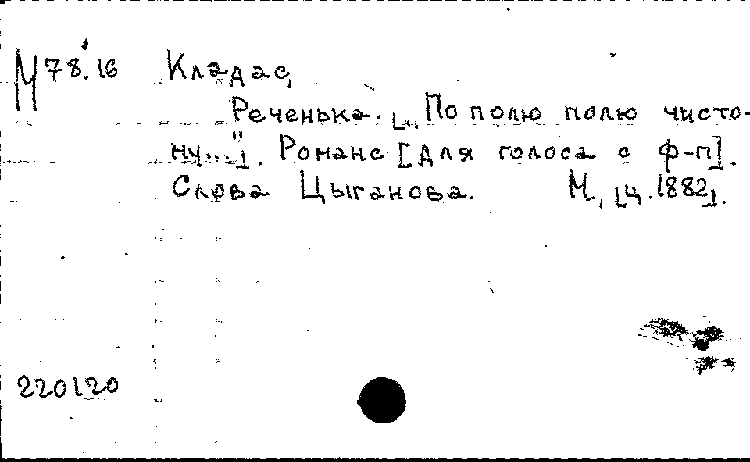 М 78.16 Кладас,
Реченька. [„По полю полю чисто-
му..."]. Романс [для голоса с ф-п].
Слова Цыганова. М., [ц. 1882].
220120